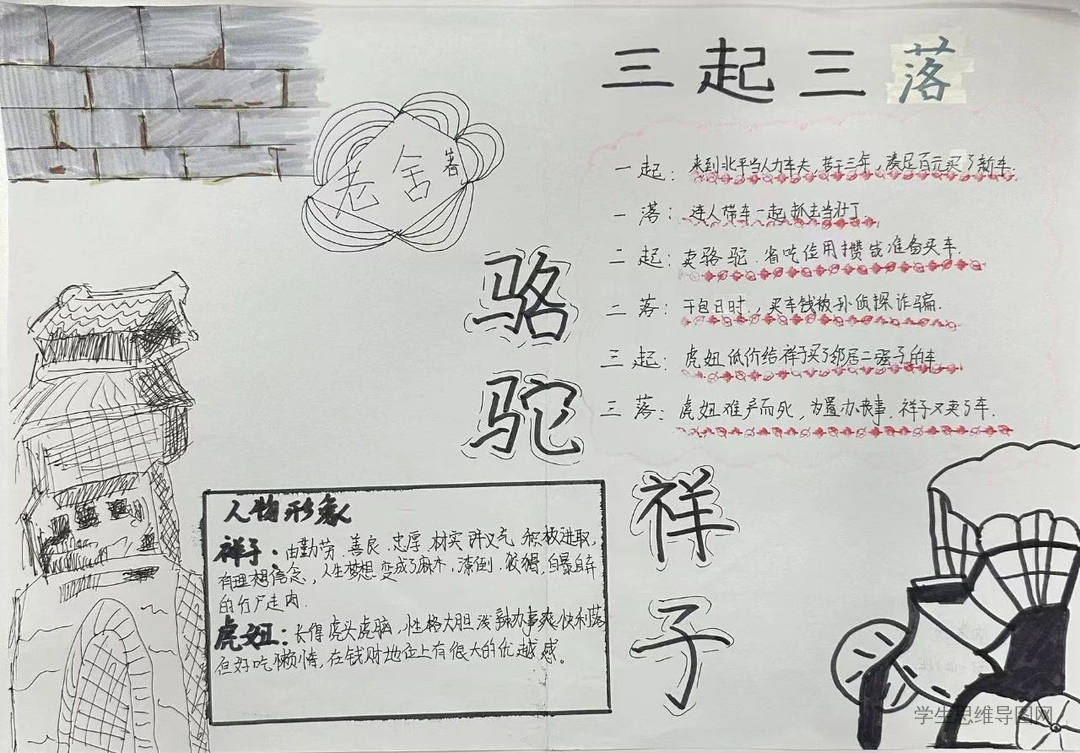 三起三落
老舍著
一起：来到北平当人力车夫，苦干三年，凑足百元买了新车.
一落：连人带车一起抓去当壮丁
二起：卖骆驼.省吃俭用攒钱准备买车.
二落：干包日时.，买车钱被孙侦探诈骗.
三起：虎妞低价给祥子买了邻居二强子的车
三落：虎妞难产而死，为置办丧事，祥子又卖了车.
骆驼
祥子
人物形象
祥子：由勤劳、善良、忠厚、老实讲义气、积极进取，
有理想信念，人生梦想变成了麻木，潦倒，狡猾，自暴自弃
的行尸走肉.
虎妞：长得虎头虎脑，性格大胆泼辣办事爽快利落
但好吃懒惰，在钱财地位上有很大的优越感。
学生思维导图网